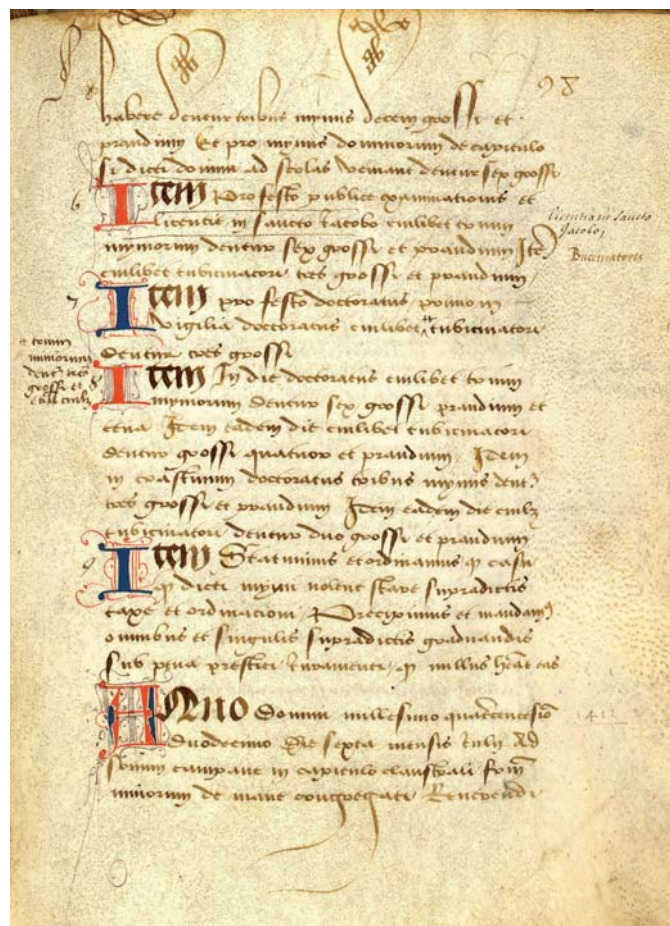 98
habere dentur tribus mymis decem grossi et
prandium Et pro mymis dominorum de capitulo
si dicti domini ad scolas veniant dentur sex grossi
6 Item Pro festo publice examinationis et
licencie in sancto Jacobo cuilibet trium
licentia in sancto
Jacobo,
mymorum dentur sex grossi et prandium Ite
Buccinatores
cuilibet tubicinatori tres grossi et prandium
7 Item pro festo doctoratus primo in
vigilia doctoratus cuilibet tubicinatori
trium
mimorum
dent tres
grossi et
dentur tres grossi
8 Item In die doctoratus cuilibet trium
mymorum dentur sex grossi prandium et
cena Item eadem die cuilibet tubicinatori
dentur grossi quatuor et prandium Idem
in crastinum doctoratus tribus mymis dent
tres grossi et prandium Idem eadem die cuilz
tubicinatori dentur duo grossi et prandium
9 Item Statuimus et ordinamus q casu
q dicti mymi nolent stare supradictis
taxe et ordinacioni Precipimus et mandam
omnibus et singulis supradictis graduandis
sub pena prestiti Juramenti q nullus heat eas
Anno Domini millesimo quadcentesio
1412
duodecimo Die sexta mensis Julii Ad
sonum campane in capitulo claustrali frm
minorum de mane congregati Reverendi